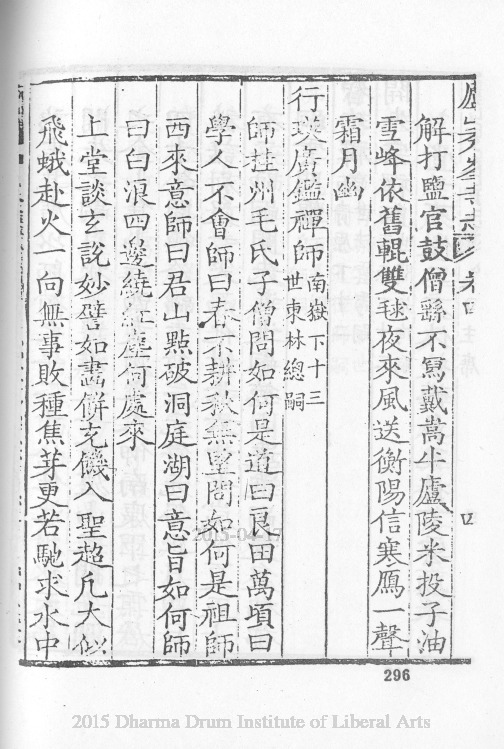 廬山秀峯寺志 卷四
四
解打鹽官鼓僧繇不寫戴嵩牛廬陵米投子油
雪峰依舊輥雙毬夜來風送衡陽信寒鴈一聲
霜月幽
行瑛廣鑑禪師 南嶽下十三
世東林總嗣
師桂州毛氏子僧問如何是道曰良田萬頃曰
學人不會師曰春不耕秋無望問如何是祖師
西來意師曰君山點破洞庭湖曰意旨如何師
曰白浪四邊繞紅塵何處來
上堂談玄說妙譬如畵餅充饑入聖超凡大似
飛蛾赴火一向無事敗種焦芽更若馳求水中
296
2015-04-17
2015 Dharma Drum Institute of Liberal Arts